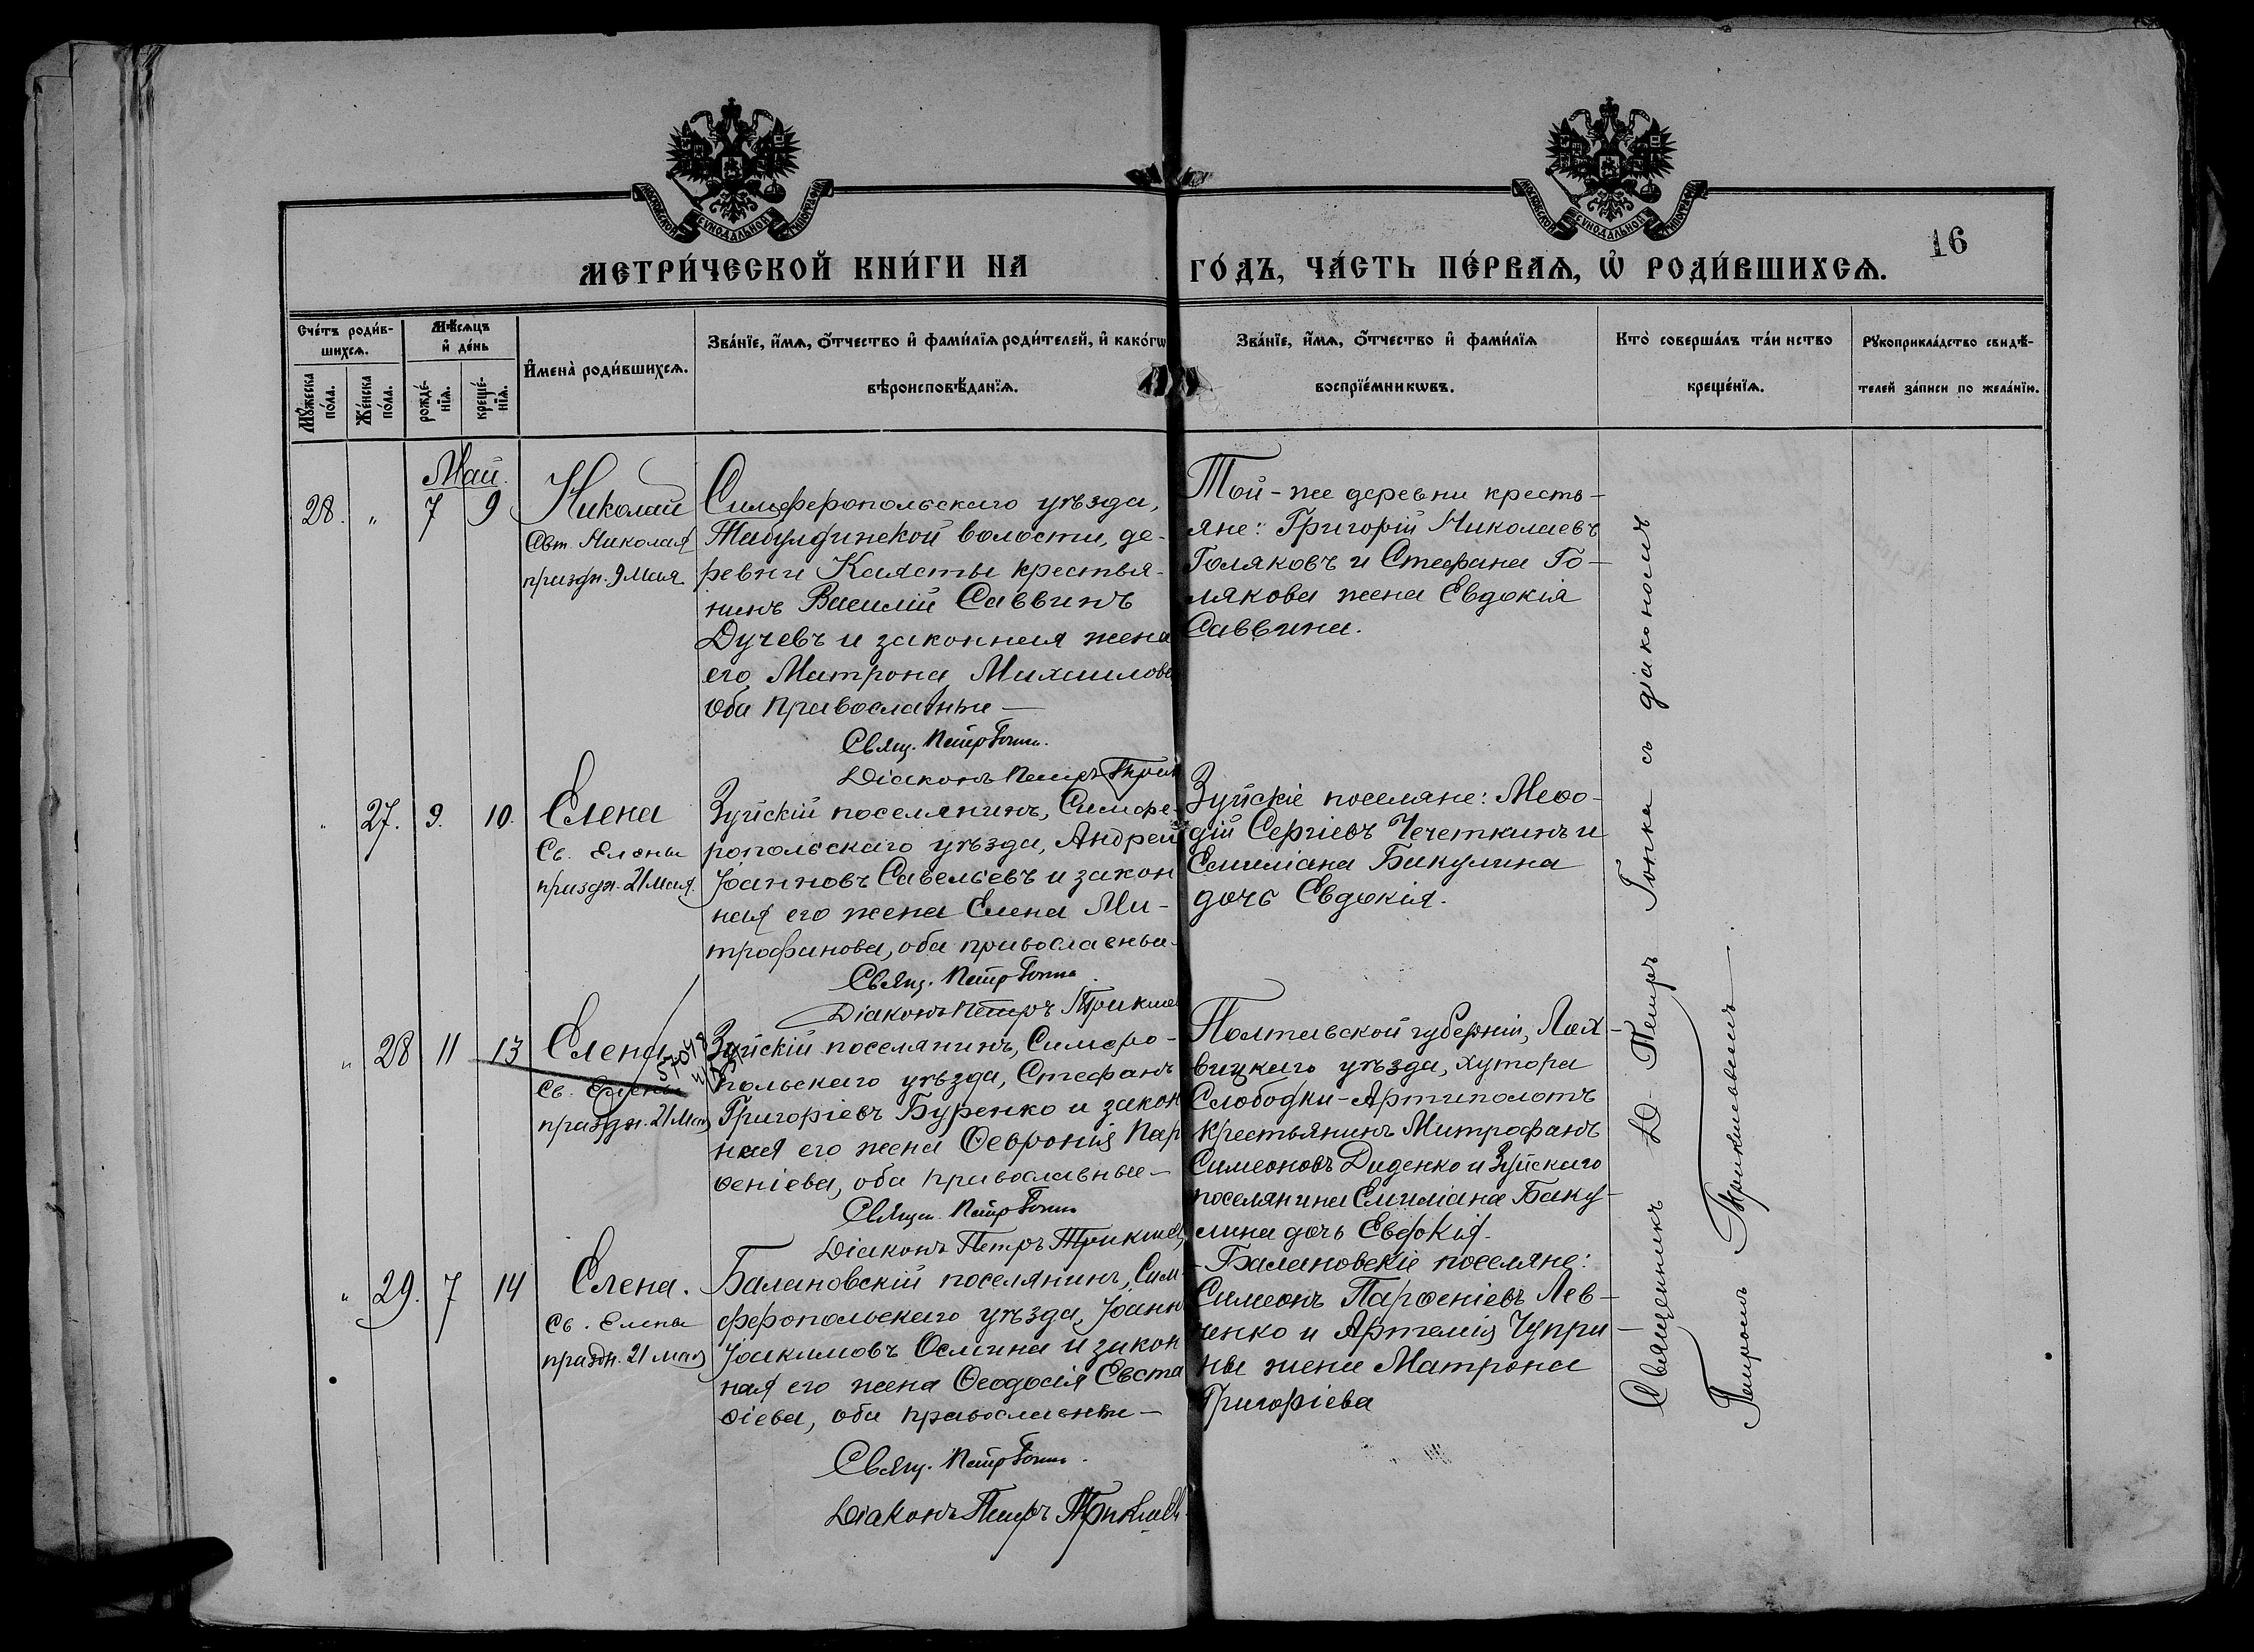 МОСКОВСКОЙ СѴНОДАЛЬНОЙ ТИПОГРАФІИ
МОСКОВСКОЙ СѴНОДАЛЬНОЙ ТИПОГРАФІИ
16
МЕТРИ́ЧЕСКОЙ КНИ́ГИ НА
ГО́ДЪ, ЧА́СТЬ ПЕ́РВАѦ, Ѡ҆ РОДИ́ВШИХСѦ.
Сче́тъ роди́в-
шихсѧ.
Мꙋ́жеска по́ла.
Же́нска по́ла.
Мѣ́сѧцъ
и҆ де́нь
рожде́-нїѧ.
креще́-нїѧ.
И҆мена̀ роди́вшихсѧ.
Зва́нїе, и҆́мѧ, ѻ҆́тчество и҆ фами́лїѧ роди́телей, и҆ како́гѡ
вѣроисповѣ́данїѧ.
Зва́нїе, и҆́мѧ, ѻ҆́тчество и҆ фами́лїѧ
воспрїе́мникѡвъ.
Кто̀ соверша́лъ та́инство
креще́нїѧ.
Рꙋкоприкла́дство свидѣ́-
телей за́писи по жела́нїю.
Май.
28. " 7 9
Николай
Свт. Николая
праздн. 9 Мая
Симферопольскаго уѣзда,
Табулдинской волости, де-
ревни Каясты крестья-
нинъ Василій Саввинъ
Дучевъ и законная жена
его Матрона Михаилова
оба православные —
Свящ. Петръ Гопка.
Діаконъ Петръ
Той-же деревни кресть-
яне: Григорій Николаевъ
Голяковъ и Стефана Го-
лякова жена Евдокія
Саввина.
" 27. 9. 10.
Елена
Св. Елены
праздн. 21 мая.
Зуйскій поселянинъ, Симфе-
ропольскаго уѣзда, Андрей
Іоанновъ Савельевъ и закон
ная его жена Елена Ми-
трофанова, оба православные.
Свящ. Петръ Гопка
Діаконъ Петръ
Зуйскіе поселяне: Меѳо-
дій Сергіевъ Чечеткинъ и
Емиліана Бакулина
дочь Евдокія.
" 28 11 13
Елена
Св. Елены
праздн. 21 Мая
Зуйскій поселянинъ, Симфро-
польскаго уѣзда, Стефанъ
Григоріевъ Буренко и закон
ная его жена Ѳевронія Пар
ѳеніева, оба православные —
Свящ. Петръ Гопка
Діаконъ Петръ
Полтавской губерніи, Лох-
вицкаго уѣзда, хутора
Слободки-Артиполотъ
крестьянинъ Митрофанъ
Симеоновъ Диденко и Зуйскаго
поселянина Емиліана Баку-
лина дочь Евдокія.
" 29. 7 14
Елена.
Св. Елены
праздн. 21 мая
Балановскій поселянинъ, Сим-
феропольскаго уѣзда, Іоанн
Іоакимовъ Осмина и закон
ная его жена Ѳеодосія Евста
ѳіева, оба православные —
Свящ. Петръ Гопка.
Діаконъ Петръ
- Балановскіе поселяне:
Симеонъ Парѳеніевъ Лев-
ченко и Артемія Чупри-
ны жена Матрона
Григоріева
Священникъ Петръ Гопка съ діакономъ
Петромъ